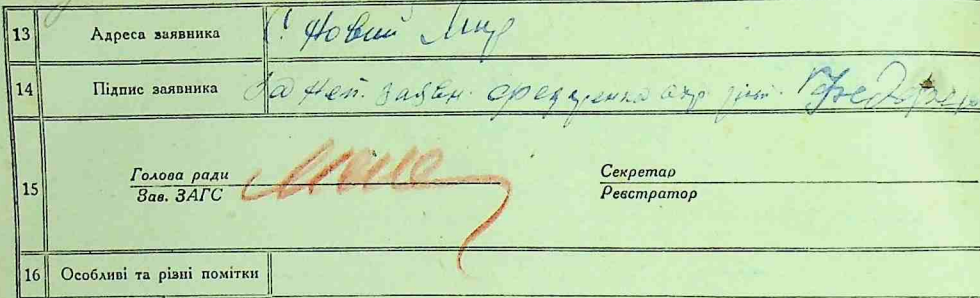 13 Адреса заявника с. Новий Мир
14 Підпис заявника За неп. заявн.
15 Голова ради Секретар
Зав. ЗАГС Реєстратор
16 Особливі та різні помітки